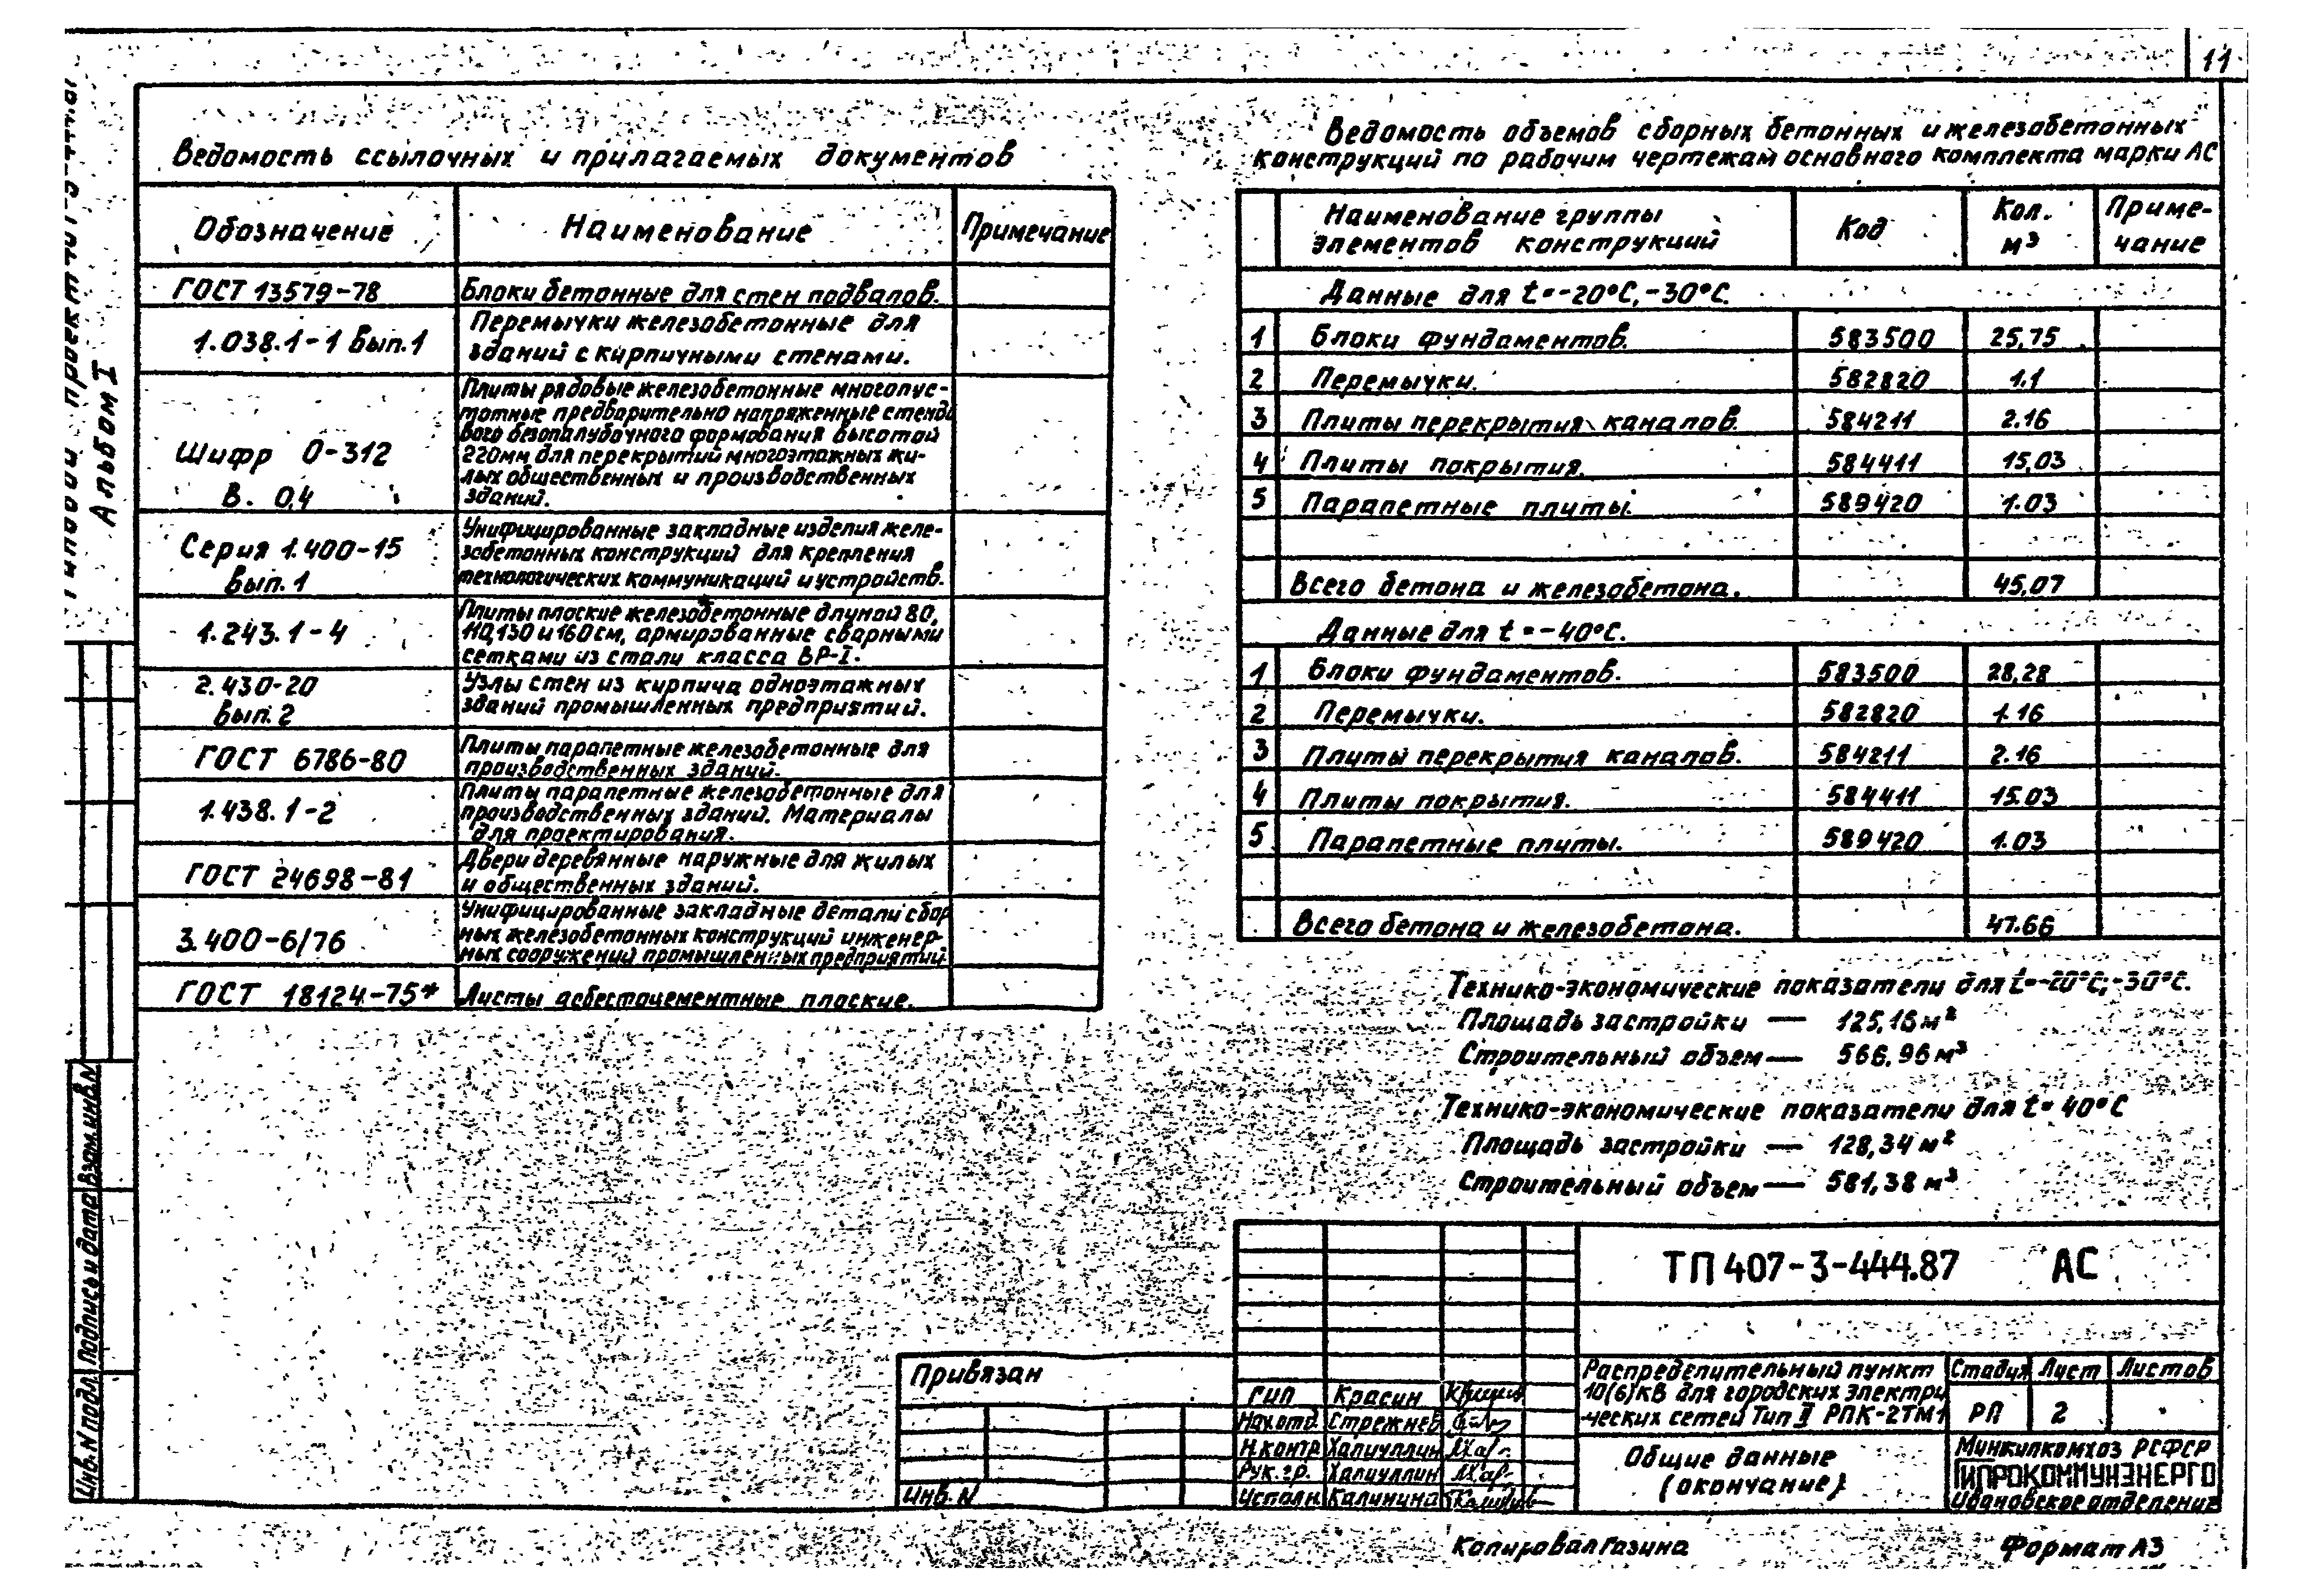 11
Типовой проект 407-3-444.87
Альбом I
Ведомость ссылочных и прилагаемых документов
Обозначение Наименование Примечание
ГОСТ 13579-78 Блоки бетонные для стен подвалов.
1.038.1-1 вып.1 Перемычки железобетонные для
зданий с кирпичными стенами.
Шифр 0-312
В. 0,4
Плиты рядовые железобетонные многопус-
тотные предварительно напряженные стендо
вого безопалубочного формования высотой
220мм для перекрытий многоэтажных жи-
лых общественных и производственных
зданий.
Серия 1.400-15
вып.1
Унифицированные закладные изделия желе-
зобетонных конструкций для крепления
технологических коммуникаций и устройств.
1.243.1-4
Плиты плоские железобетонные длуной 80,
110,130 и 160 см, армированные сварными
сетками из стали класса ВР-I.
2.430-20
вып.2
Узлы стен из кирпича одноэтажных
зданий промышленных предприятий.
ГОСТ 6786-80
Плиты парапетные железобетонные для
производственных зданий.
1.438.1-2
Плиты парапетные железобетонные для
производственных зданий. Материалы
для проектирования.
ГОСТ 24698-81
Двери деревянные наружные для жилых
и общественных зданий.
3.400-6/76
Унифицированные закладные детали сбор
ных железобетонных конструкций инженер-
ных сооружений промышленных предприятий.
ГОСТ 18124-75* Листы асбестоцементные плоские.
Ведомость объемов сборных бетонных и железобетонных
конструкций по рабочим чертежам основного комплекта марки АС
Наименование группы
элементов конструкций
Код
Кол.
м³
Приме-
чание
Данные для t=-20°С,-30°С.
1 Блоки фундаментов. 583500 25,75
2 Перемычки. 582820 1.1
3 Плиты перекрытия каналов. 584211 2.16
4 Плиты покрытия. 584411 15,03
5 Парапетные плиты. 589420 1.03
Всего бетона и железобетона. 45,07
Данные для t=-40°С.
1 Блоки фундаментов. 583500 28,28
2 Перемычки. 582820 1.16
3 Плиты перекрытия каналов. 584211 2.16
4 Плиты покрытия. 584411 15.03
5 Парапетные плиты. 589420 1.03
Всего бетона и железобетона. 47.66
Технико-экономические показатели для t=-20°С,-30°С.
Площадь застройки — 125,16 м²
Строительный объем — 566,96 м³
Технико-экономические показатели для t= 40°С
Площадь застройки — 128,34 м²
Строительный объем — 581,38 м³
ТП 407-3-444.87 АС
Распределительный пункт
10(6)кВ для городских электри
ческих сетей Тип II РПК-2ТМ1
Стадия Лист Листов
РП 2
Общие данные
(окончание)
Минжилкомхоз РСФСР
ГИПРОКОММУНЭНЕРГО
Ивановское отделение
Привязан
Инв. N
ГИП Красин
Нач.отд. Стрежнев
Н.контр Халиуллин
Рук.гр. Халиуллин
Исполн. Калинина
Взам.инв.N
Подпись и дата
Инв.N подл.
Копировал Газина
Формат А3